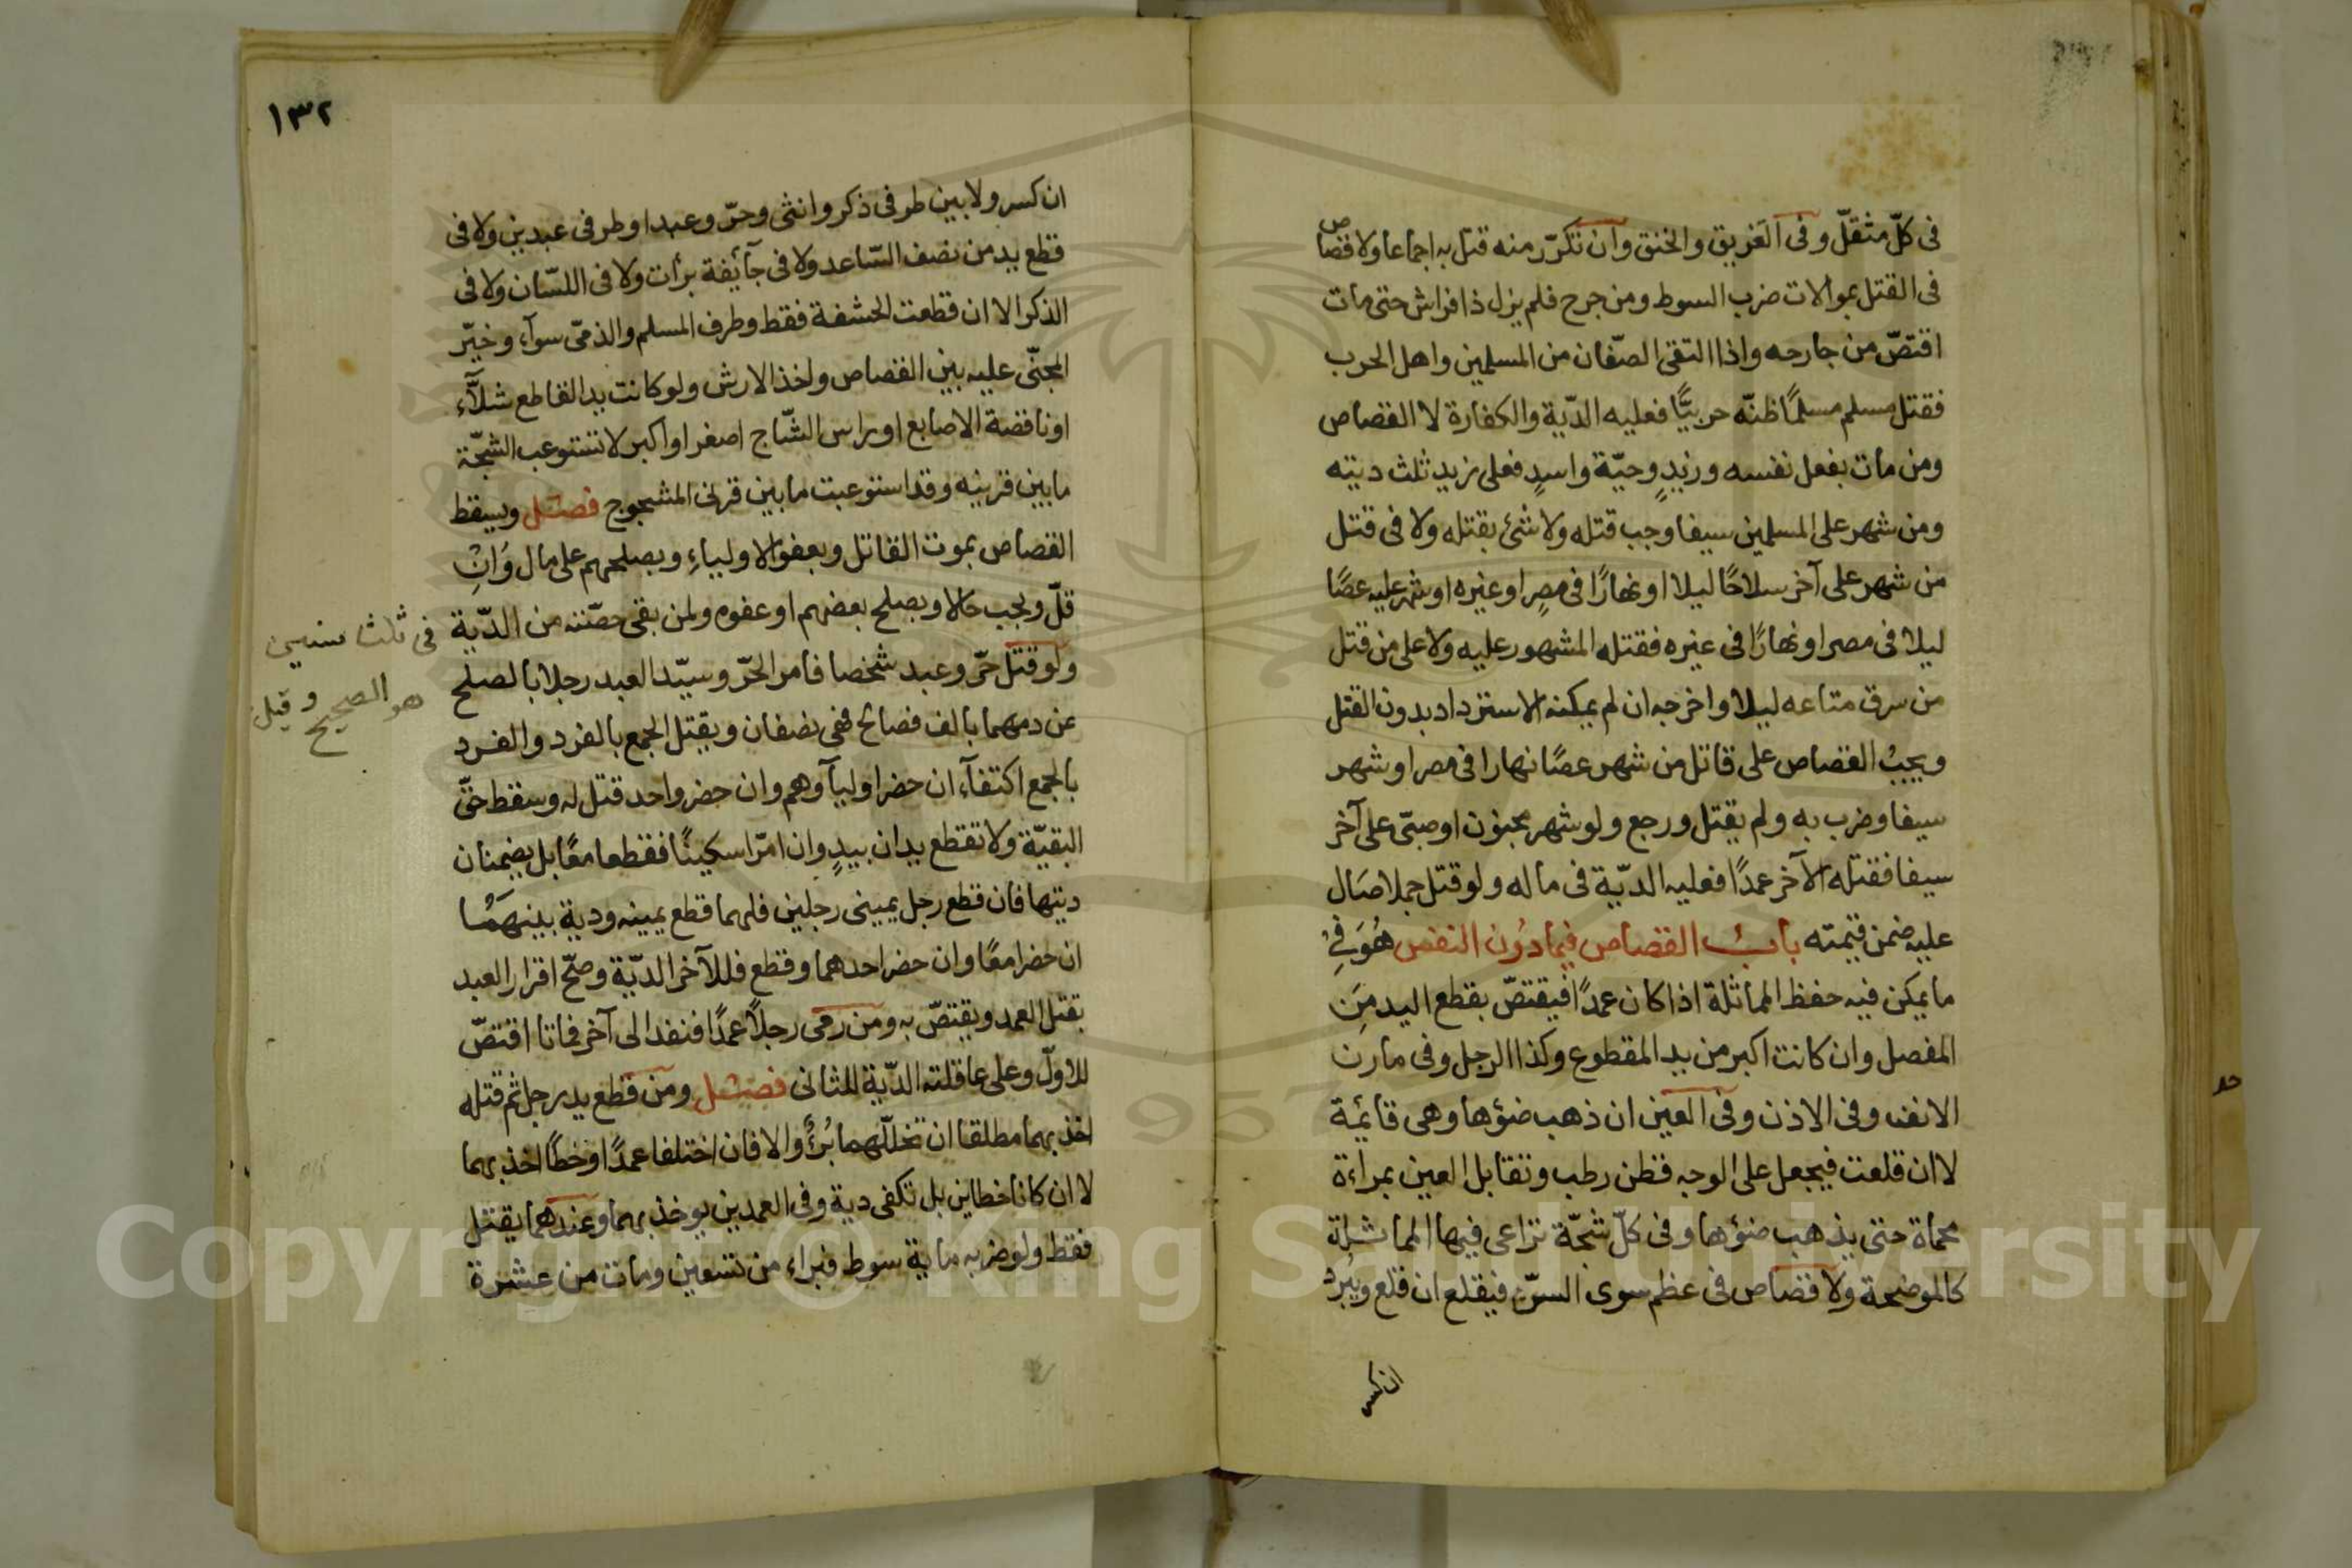 فى كلّ مثقلّ وفى الغريق والخنق وان تكرّر منه قتل به اجماعا ولا قصاص
فى القتل بموالات ضرب السوط ومن جرح فلم يزل ذا فراش حتى مات
اقتصّ من جارحه واذا التقى الصّفان من المسلمين واهل الحرب
فقتل مسلم مسلمًا ظنّه حربيًّا فعليه الدّية والكفارة لا القصاص
ومن مات بفعل نفسه وزيدٍ وحيّة واسدٍ فعلى زيد ثلث ديته
ومن شهر على المسلمين سيفا وجب قتله ولا شئ بقتله ولا فى قتل
من شهر على آخر سلاحًا ليلا او نهارًا فى مصرٍ او غيره او شهر عليه عصًا
ليلا فى مصر او نهارًا فى غيره فقتله المشهور عليه ولا على من قتل
من سرق متاعه ليلا واخرجه ان لم يمكنه الاسترداد بدون القتل
ويجبُ القصاص على قاتل من شهر عصًا نهارا فى مصر او شهر
سيفا وضرب به ولم يقتل ورجع ولو شهر مجنون او صبىّ على آخر
سيفا فقتله الآخر عمدًا فعليه الديّة فى ماله ولو قتل جملا صَال
عليه ضمن قيمته بابُ القصاص فيما دُون النفس هُوَ فِى
ما يمكن فيه حفظ المماثلة اذا كان عمدًا فيقتصّ بقطع اليد مِنَ
المفصل وان كانت اكبر من يد المقطوع وكذا الرجل وفى مارن
الانف وفى الاذن وفى العين ان ذهب ضوُها وهى قايمة
لا ان قلعت فيجعل على الوجه قطن رطب وتقابل العين بمراءة
محماة حتى يذهب ضوُها وفى كلّ شجّة تراعى فيها المماثلة
كالموضحة ولا قصاص فى عظم سوى السنّ فيقلع ان قلع ويبُرد
ان كسر
١٣٢
ان كسر ولا بين طرفى ذكر وانثى وحرّ وعبد او طرفى عبدين ولا فى
قطع يد من نصف السّاعد ولا فى جآئفة برأت ولا فى اللسّان ولا فى
الذكر الا ان قطعت الحشفة فقط وطرف المسلم والذمىّ سوآء وخيّر
المجنّى عليه بين القصاص واخذ الارش ولو كانت يد القاطع شلّآء
او ناقصة الاصابع او راس الشّاج اصغر او اكبر لا تستوعب الشّجّة
ما بين قرنيه وقد استوعبت ما بين قرنى المشجوج فصل ويسقط
القصاص بموت القاتل وبعفو الاولياءِ وبصلحهم على مال وَانِْ
قلّ ويجب حالا وبصلح بعضهم او عفوه ولمن بقى حصّته من الدّية
فى ثلث سنين
هو الصحيح وقيل
ولو قتل حرّ وعبد شخصا فامر الحرّ وسيّد العبد رجلا بالصلح
عن دمهما بالف فصالح فهى نصفان ويقتل الجمع بالفرد والفرد
بالجمع اكتفآء ان حضر اوليآوهم وان حضر واحد قتل له وسقط حقّ
البقيّة ولا تقطع يدان بيدٍ وان امرّا سكينًا فقطعا معًا بل يضمنان
ديتها فان قطع رجل يمينى رجلين فلهما قطع يمينه ودية بينهَمُا
ان حضرا معًا وان حضر احدهما وقطع فللآخر الديّة وصحّ اقرار العبد
بقتل العمد ويقتصّ به ومن رمى رجلاً عمدًا فنفد الى آخر فماتا اقتصّ
للاوّل وعلى عاقلته الدّية للثانى فصل ومن قطع يد رجل ثم قتله
اخذ بهما مطلقا ان تخلّلهما بُرءٌ والا فان اختلفا عمدًا او خطًا اخذ بهما
لا ان كانا خطاين بل تكفى دية وفى العمدين يوخذ بهما وعندهما يقتل
فقط ولو ضربه ماية سوط فبراء من تسعين ومات من عشرة
Copyright © King Saud University